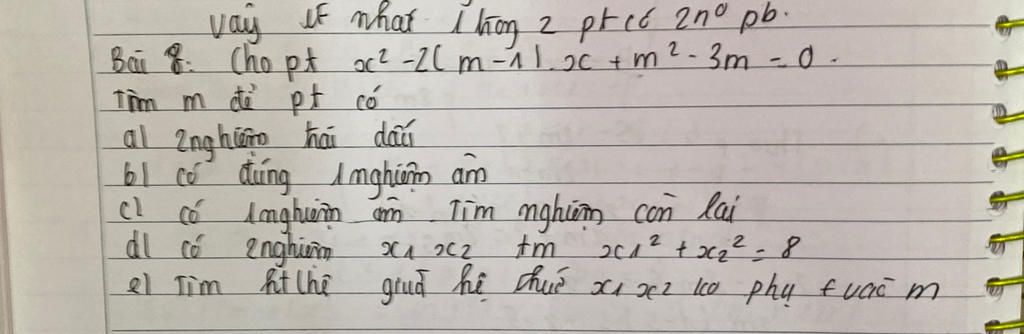 Vậy ít nhất 1 trong 2 pt có 2n⁰ pb.
Bài 8: Cho pt x² - 2(m - 1).x + m² - 3m = 0.
Tìm m để pt có
a) 2 nghiệm trái dấu
b) có đúng 1 nghiệm âm
c) có 1 nghiệm âm. Tìm nghiệm còn lại
d) có 2 nghiệm x1 x2 tm x1² + x2² = 8
e) Tìm giữa hệ thức x1 x2 ko phụ t vào m